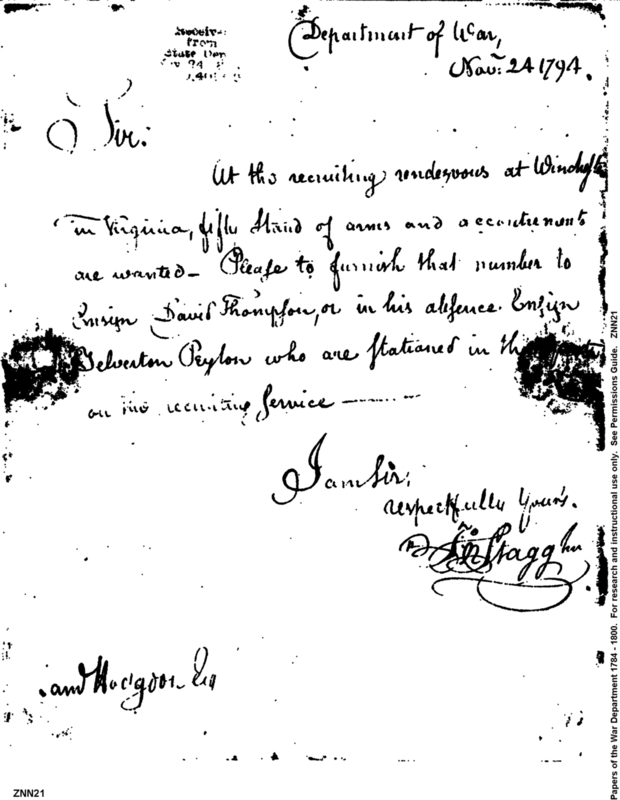 Received
from
State Dep
Department of War,
Novr. 24 1794.
Sir:
At the recruiting rendezvous at Winchester
in Virginia, fifty Stand of arms and accoutrements
are wanted— Please to furnish that number to
Ensign David Thompson, or in his absence Ensign
Yelverton Peyton who are stationed in the
on the recruiting Service ———
I am Sir,
respectfully Yours.
Jno Stagg Jnr
Hodgdon Esq
ZNN21
Papers of the War Department 1784 - 1800. For research and instructional use only. See Permissions Guide. ZNN21